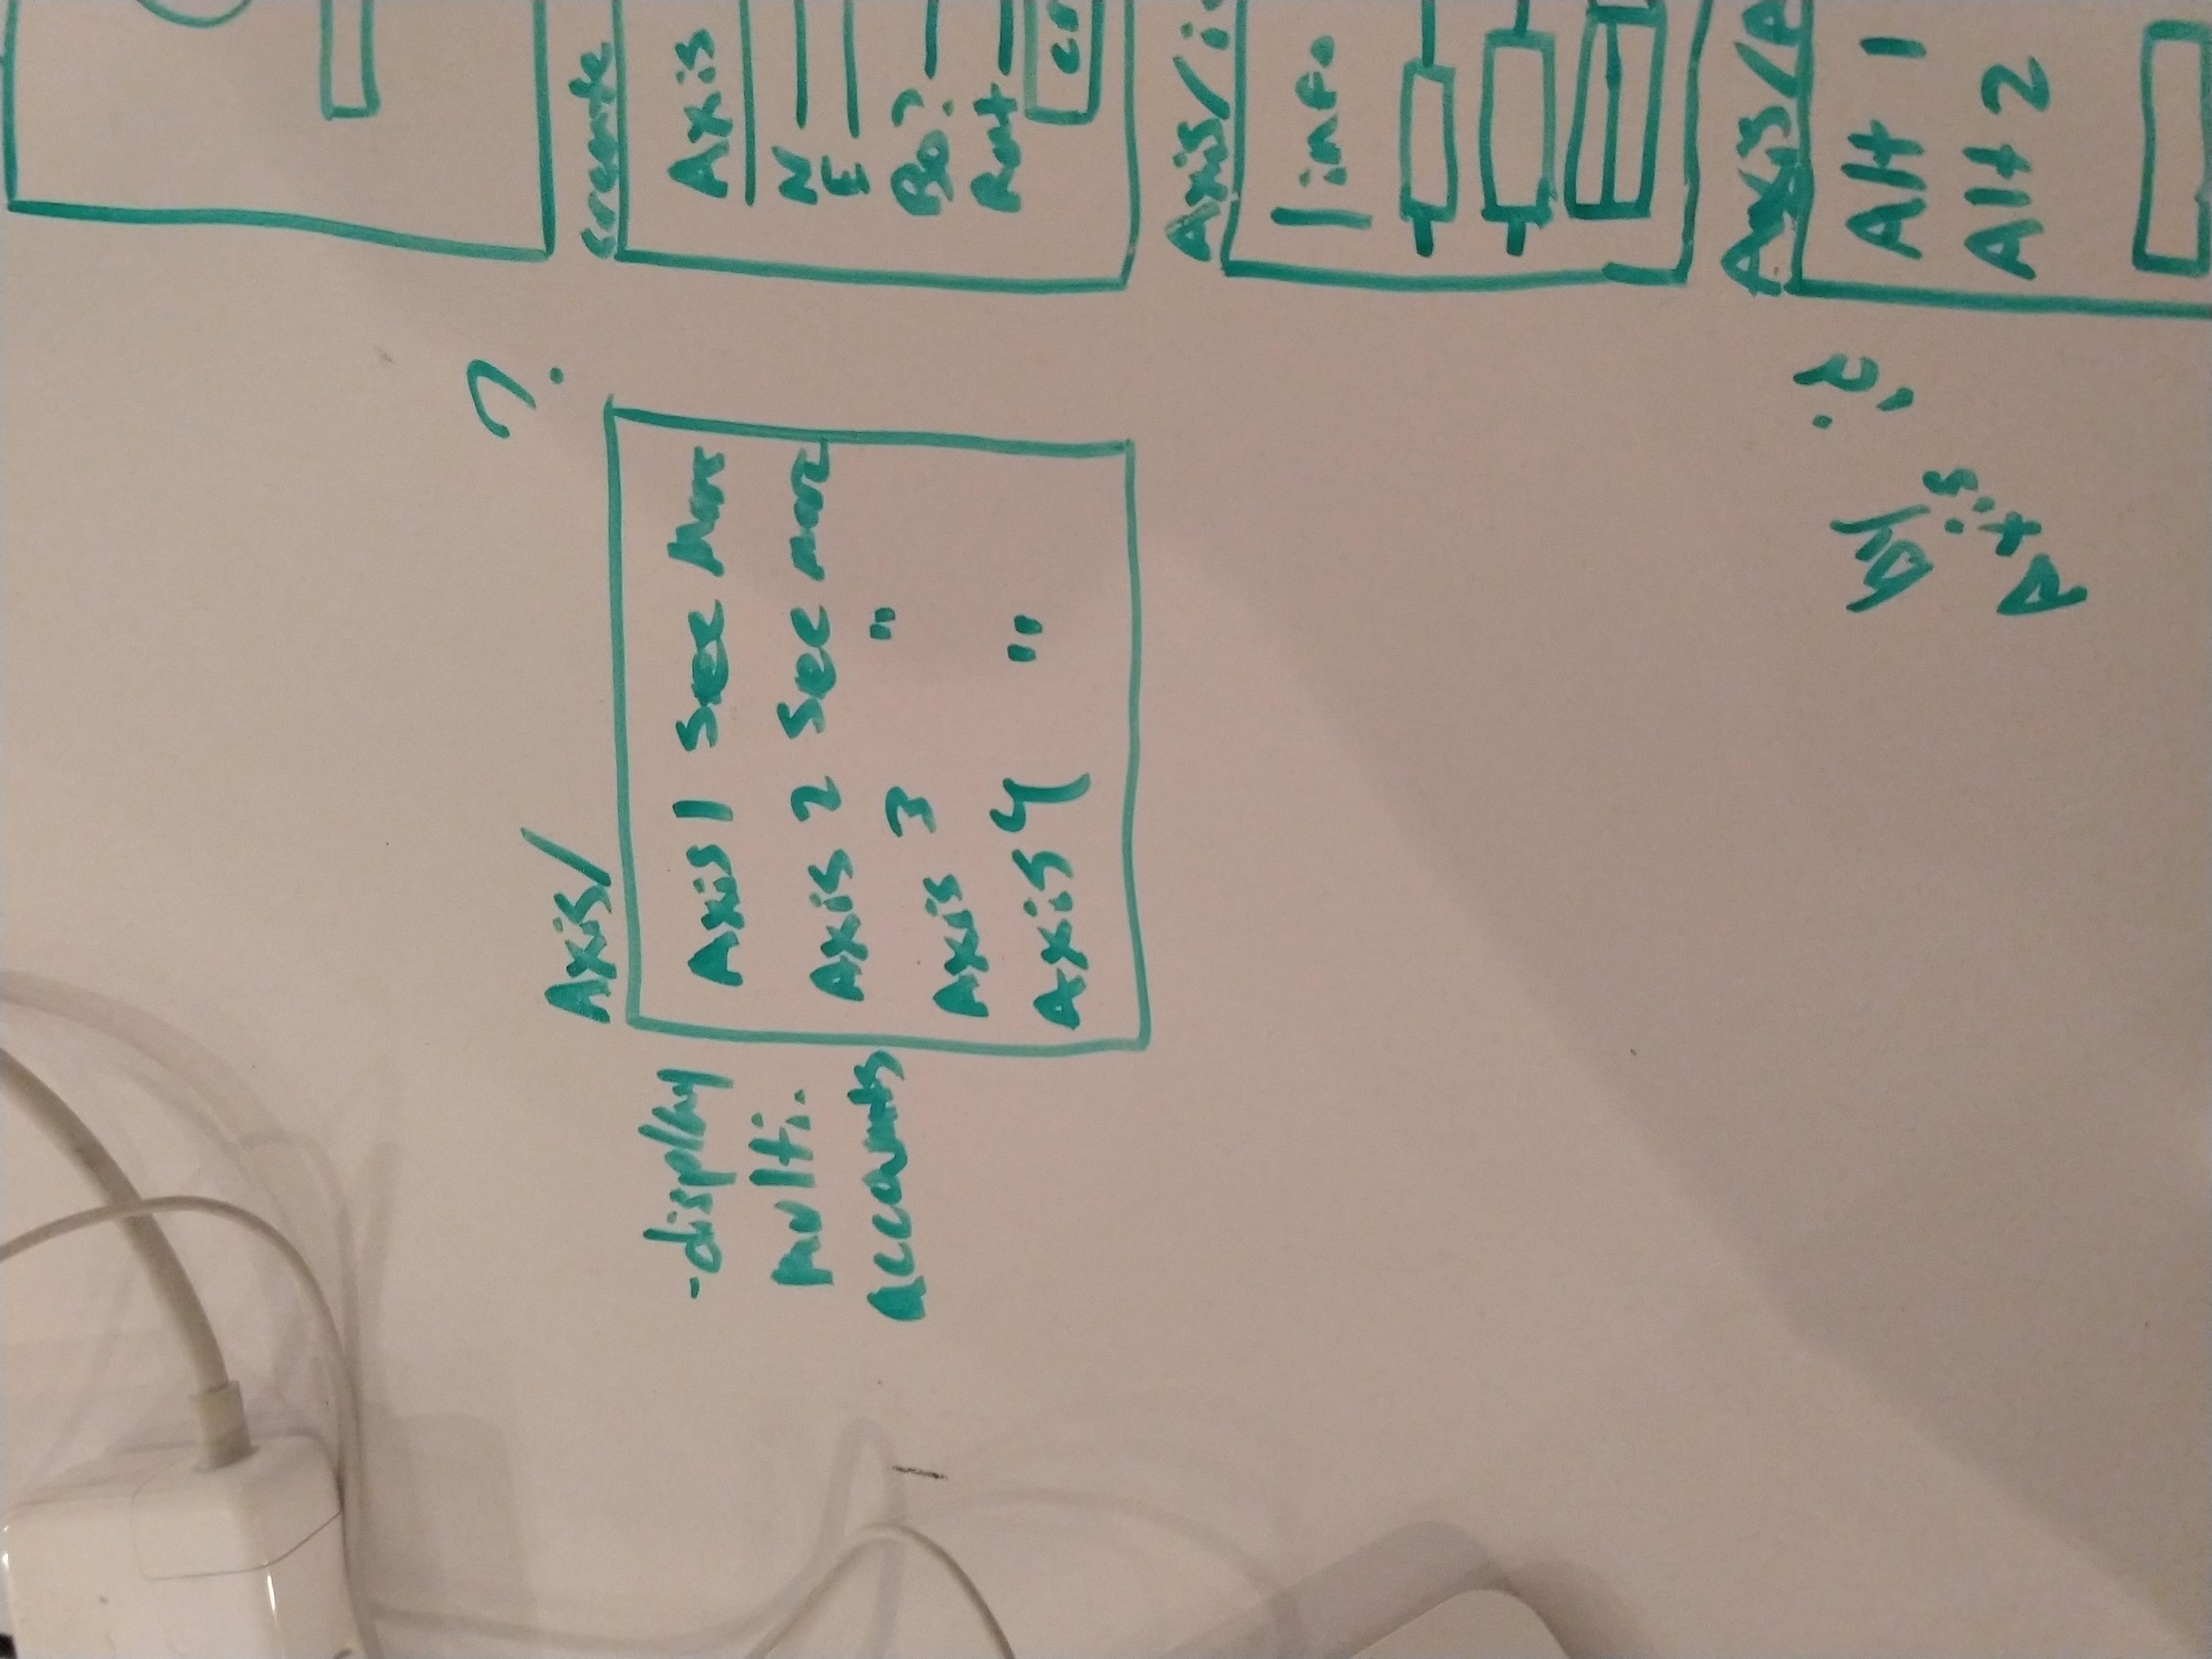 ?
Axis/
-display
multi.
accounts
Axis 1 See More
Axis 2 See more
Axis 3 "
Axis 4 "
create
Axis
N
E
Bo?
Rat
cr
Axis/i
info
by
Axis id
Axis/A
Alt 1
Alt 2